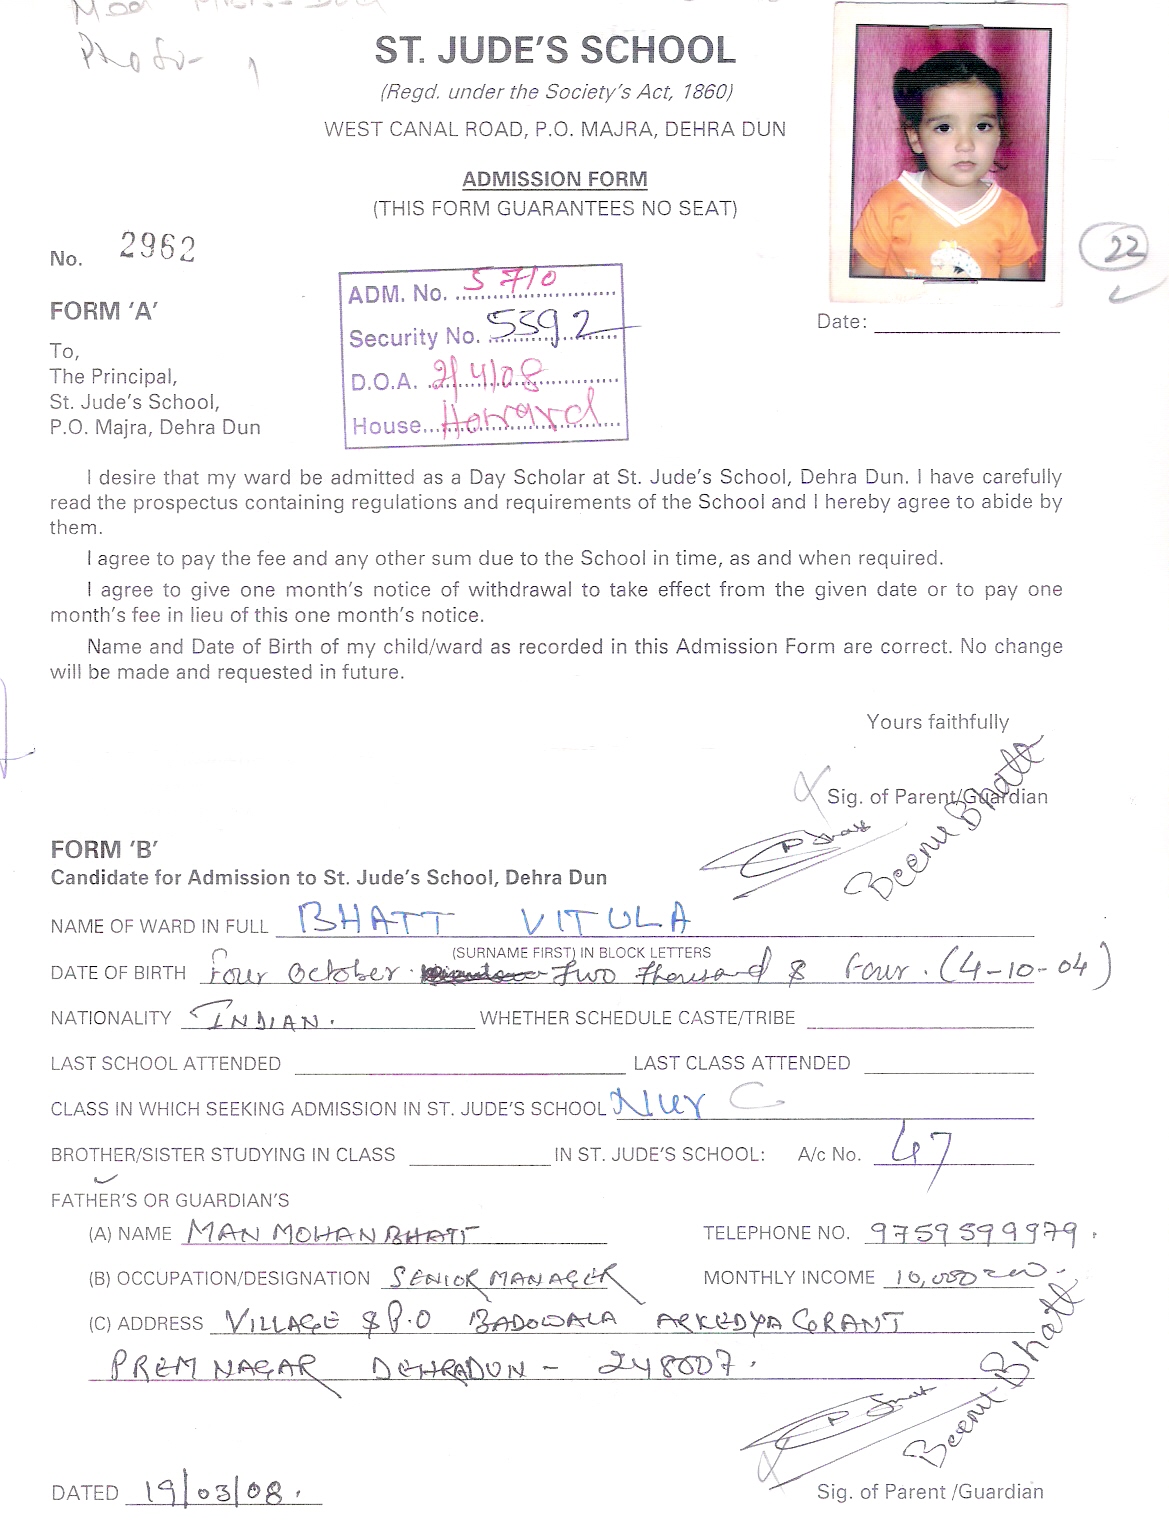 Photo - 1
ST. JUDE'S SCHOOL
(Regd. under the Society's Act, 1860)
WEST CANAL ROAD, P.O. MAJRA, DEHRA DUN
ADMISSION FORM
(THIS FORM GUARANTEES NO SEAT)
No. 2962
22
ADM. No. 5710
Security No. 5392
D.O.A. 2/4/08
House Howard
Date:
FORM 'A'
To,
The Principal,
St. Jude's School,
P.O. Majra, Dehra Dun
I desire that my ward be admitted as a Day Scholar at St. Jude's School, Dehra Dun. I have carefully
read the prospectus containing regulations and requirements of the School and I hereby agree to abide by
them.
I agree to pay the fee and any other sum due to the School in time, as and when required.
I agree to give one month's notice of withdrawal to take effect from the given date or to pay one
month's fee in lieu of this one month's notice.
Name and Date of Birth of my child/ward as recorded in this Admission Form are correct. No change
will be made and requested in future.
Yours faithfully
Sig. of Parent/Guardian
Beenu Bhatt
FORM 'B'
Candidate for Admission to St. Jude's School, Dehra Dun
NAME OF WARD IN FULL BHATT VITULA
(SURNAME FIRST) IN BLOCK LETTERS
DATE OF BIRTH Four October Two Thousand & Four. (4-10-04)
NATIONALITY INDIAN. WHETHER SCHEDULE CASTE/TRIBE
LAST SCHOOL ATTENDED LAST CLASS ATTENDED
CLASS IN WHICH SEEKING ADMISSION IN ST. JUDE'S SCHOOL Nur C
BROTHER/SISTER STUDYING IN CLASS IN ST. JUDE'S SCHOOL: A/c No. 47
FATHER'S OR GUARDIAN'S
(A) NAME MAN MOHAN BHATT TELEPHONE NO. 9759599979.
(B) OCCUPATION/DESIGNATION SENIOR MANAGER MONTHLY INCOME 10,000
(C) ADDRESS VILLAGE & P.O BADOWALA ARKEDYA GRANT
PREM NAGAR DEHRADUN - 248007.
Beenu Bhatt
DATED 19/03/08. Sig. of Parent /Guardian